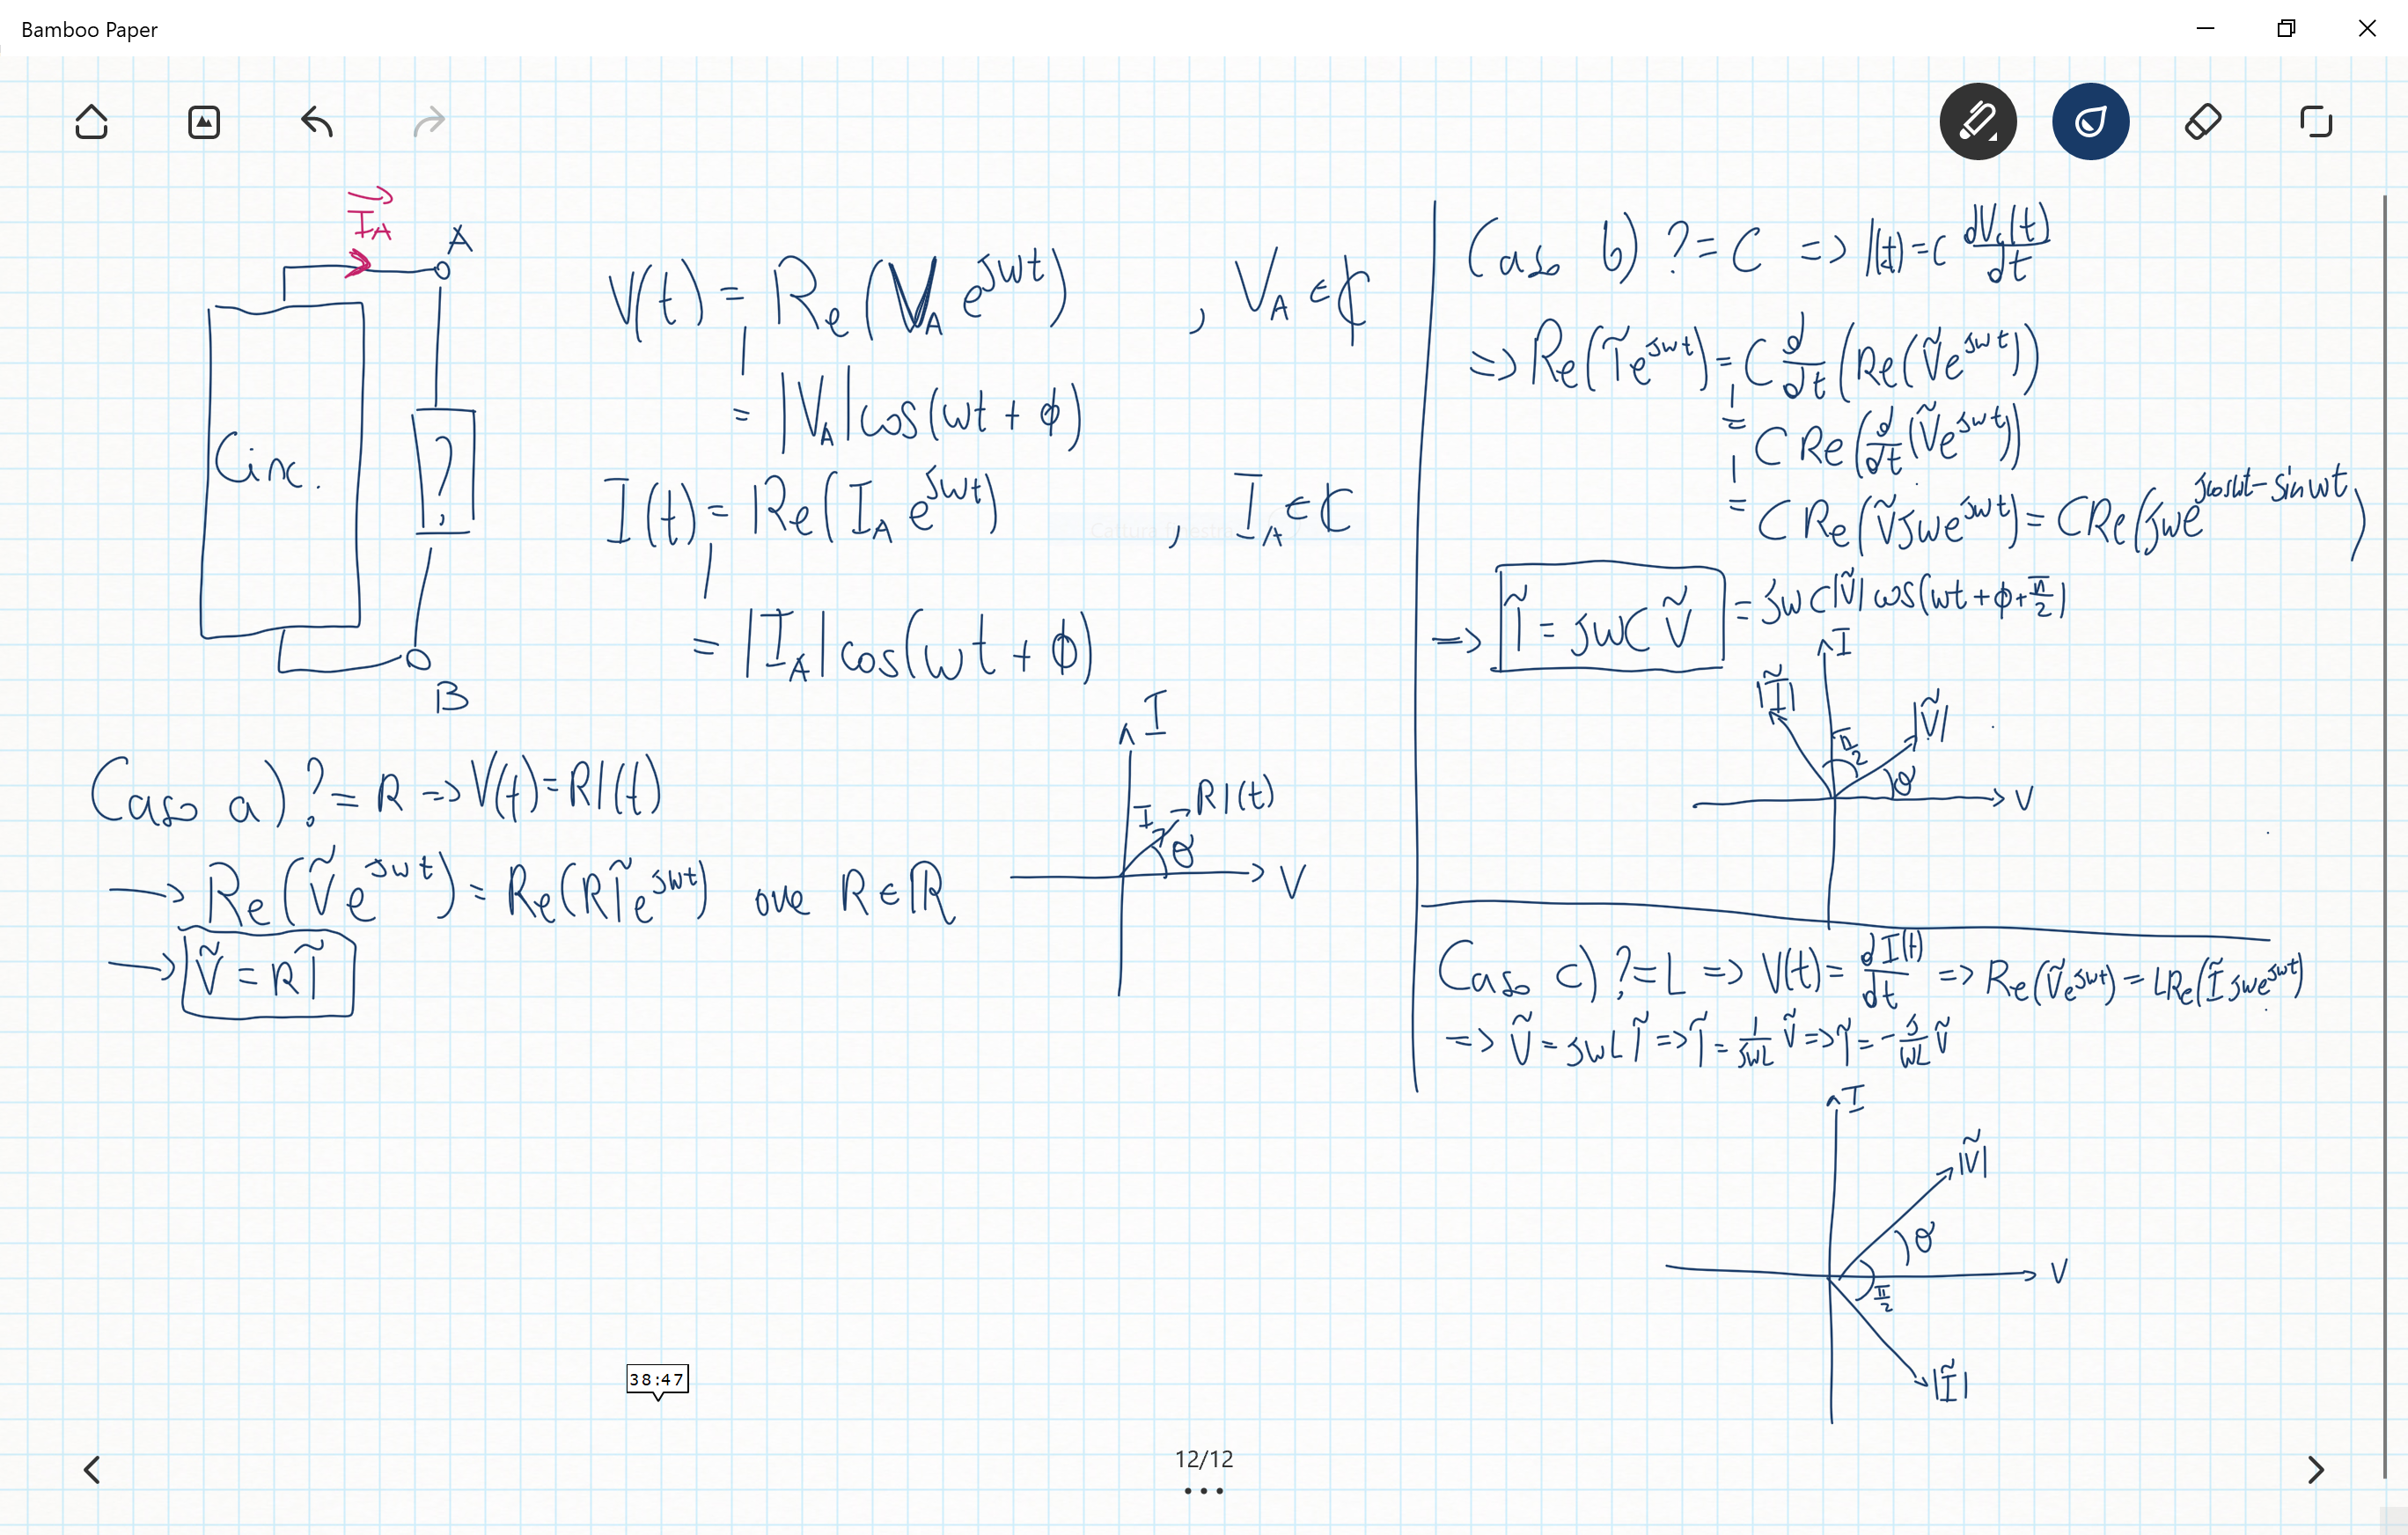 Bamboo Paper
I_A
A
Circ.
?
B
V(t) = Re(V_A e^{jωt}) , V_A ∈ ℂ
= |V_A| cos(ωt + φ)
I(t) = Re(I_A e^{jωt}) , I_A ∈ ℂ
= |I_A| cos(ωt + φ)
Caso a) ? = R => V(t) = RI(t)
→ Re(Ṽ e^{jωt}) = Re(R Ĩ e^{jωt}) ove R ∈ ℝ
→ Ṽ = R Ĩ
I
I RI(t)
θ
V
Caso b) ? = C => I(t) = C dV_c(t)/dt
=> Re(Ĩ e^{jωt}) = C d/dt (Re(Ṽ e^{jωt}))
= C Re(d/dt (Ṽ e^{jωt}))
= C Re(Ṽ jω e^{jωt}) = C Re(jω e^{jcosωt - sin ωt})
=> Ĩ = jωC Ṽ = jωC|Ṽ| cos(ωt + φ + π/2)
I
|Ĩ| |Ṽ|
π/2
θ
V
Caso c) ? = L => V(t) = dI(t)/dt => Re(Ṽ e^{jωt}) = L Re(Ĩ jω e^{jωt})
=> Ṽ = jωL Ĩ => Ĩ = 1/jωL Ṽ => Ĩ = - j/ωL Ṽ
I
|Ṽ|
θ
V
π/2
|Ĩ|
38:47
12/12